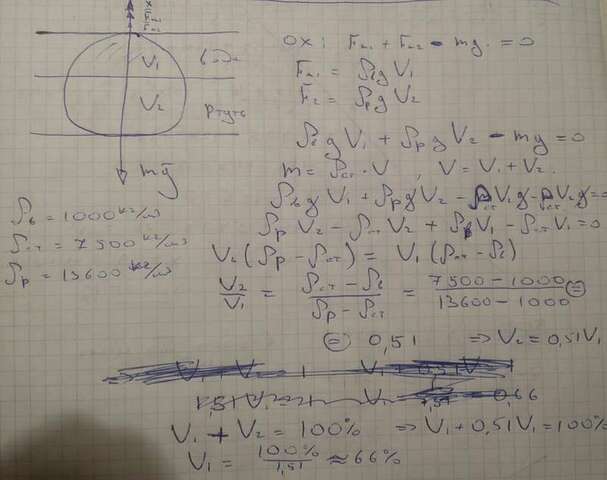 V₁ вода
V₂ ртуть
mg⃗
ρв = 1000 кг/м³
ρст = 7500 кг/м³
ρр = 13600 кг/м³
OX: Fа₁ + Fа₂ - mg = 0
Fа₁ = ρвgV₁
F₂ = ρрgV₂
ρвgV₁ + ρрgV₂ - mg = 0
m = ρст · V, V = V₁ + V₂.
ρвgV₁ + ρрgV₂ - ρстV₁g - ρстV₂g = 0
ρрV₂ - ρстV₂ + ρвV₁ - ρстV₁ = 0
V₂(ρр - ρст) = V₁(ρст - ρв)
V₂/V₁ = (ρст - ρв)/(ρр - ρст) = (7500 - 1000)/(13600 - 1000) =
= 0,51 ⇒ V₂ = 0,51V₁
V₁ + V₂ = 100% ⇒ V₁ + 0,51V₁ = 100%
V₁ = 100%/1,51 ≈ 66%